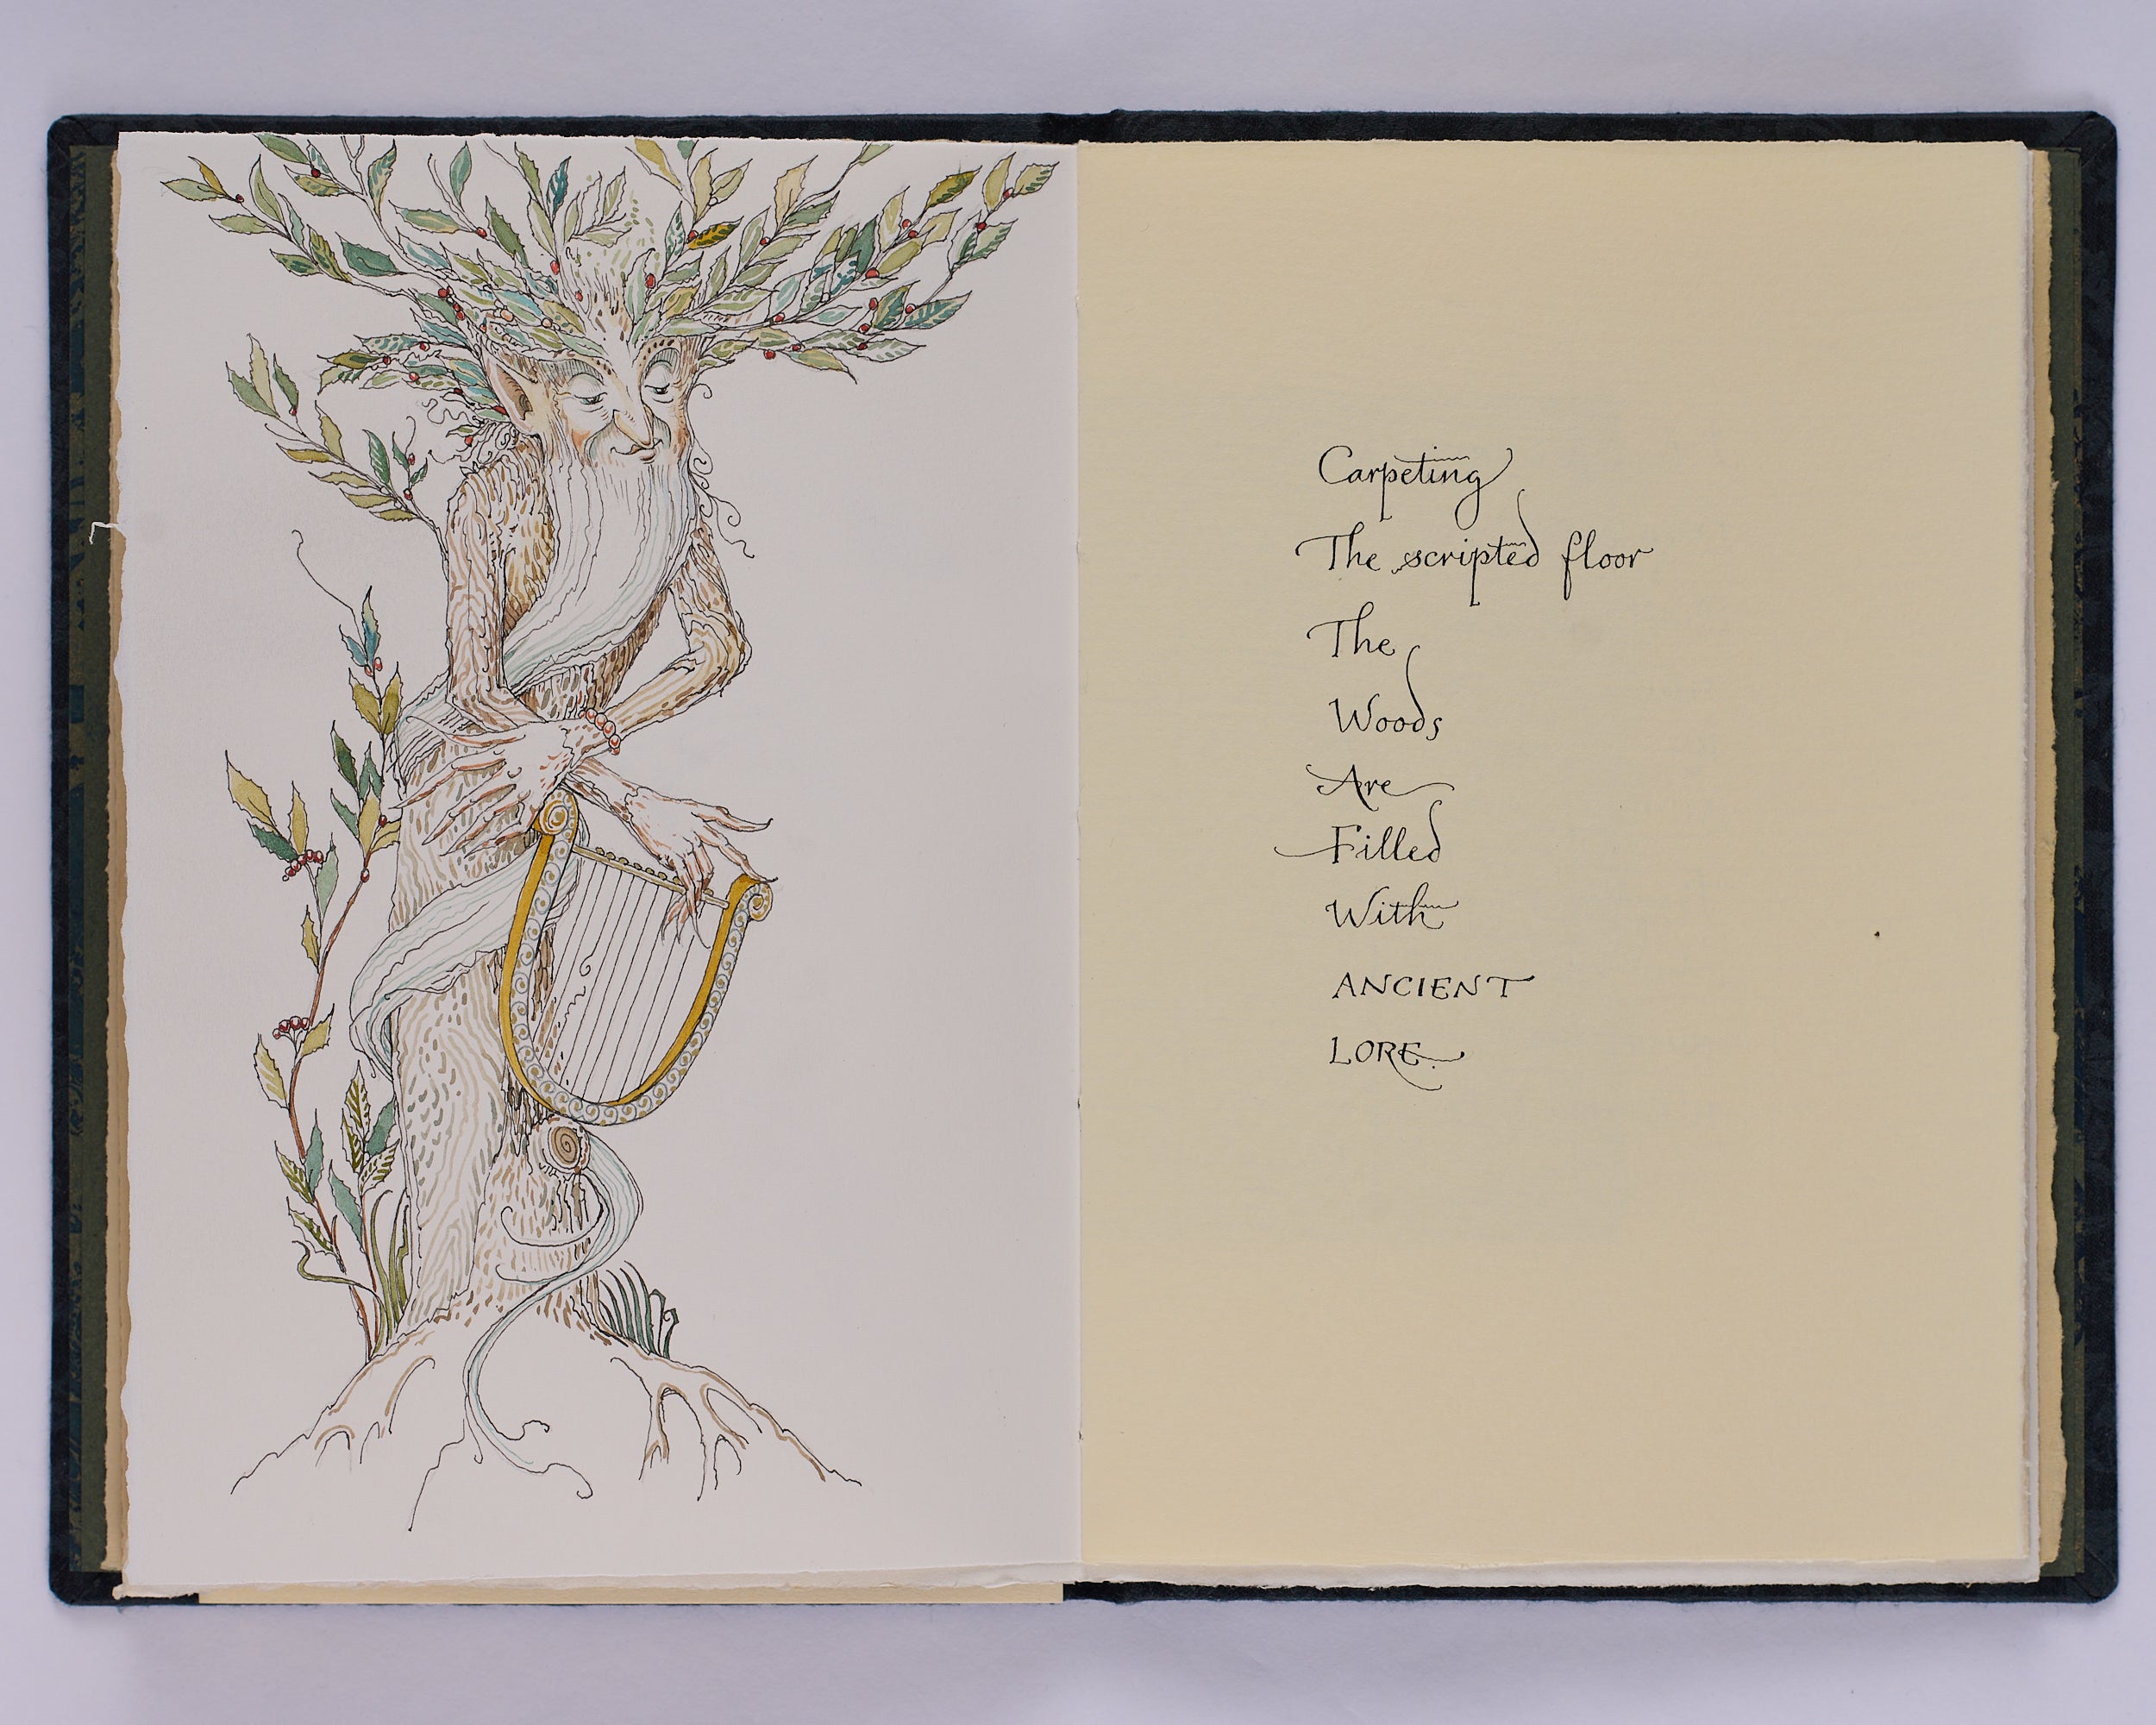 Carpeting
The scripted floor
The
Woods
Are
Filled
With
ANCIENT
LORE.